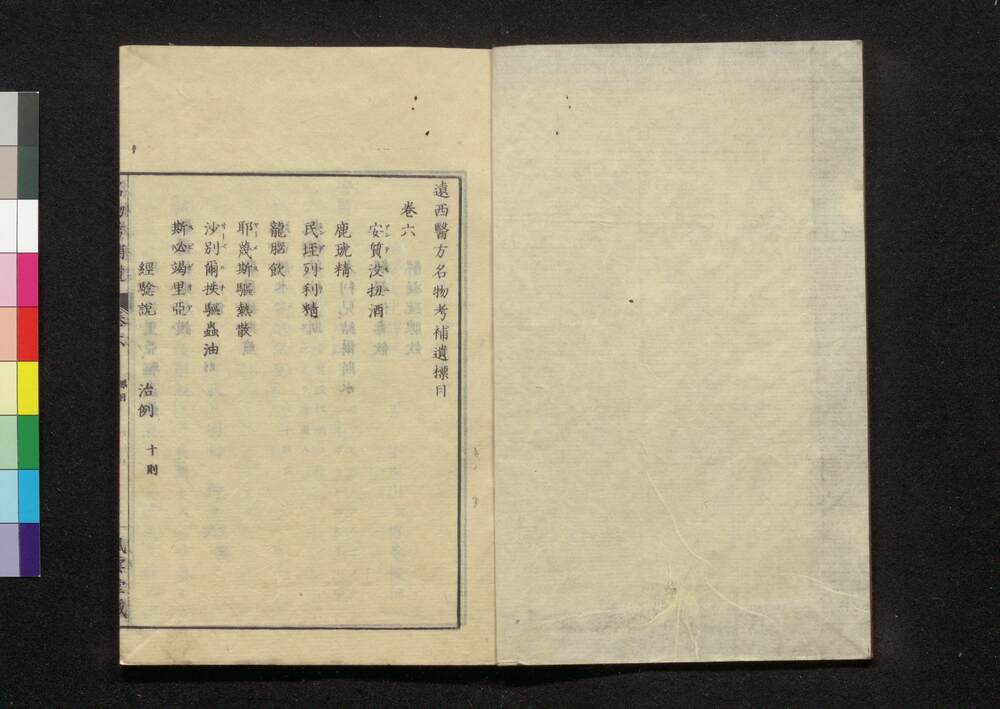 遠西醫方名物考補遺標目
卷六
安質没扭酒
鹿琥精
民垤列利精
龍腦飲
耶蔑斯驅熱散
沙別爾挨驅蟲油
斯必竭里亞
經驗說 治例 十則
標目